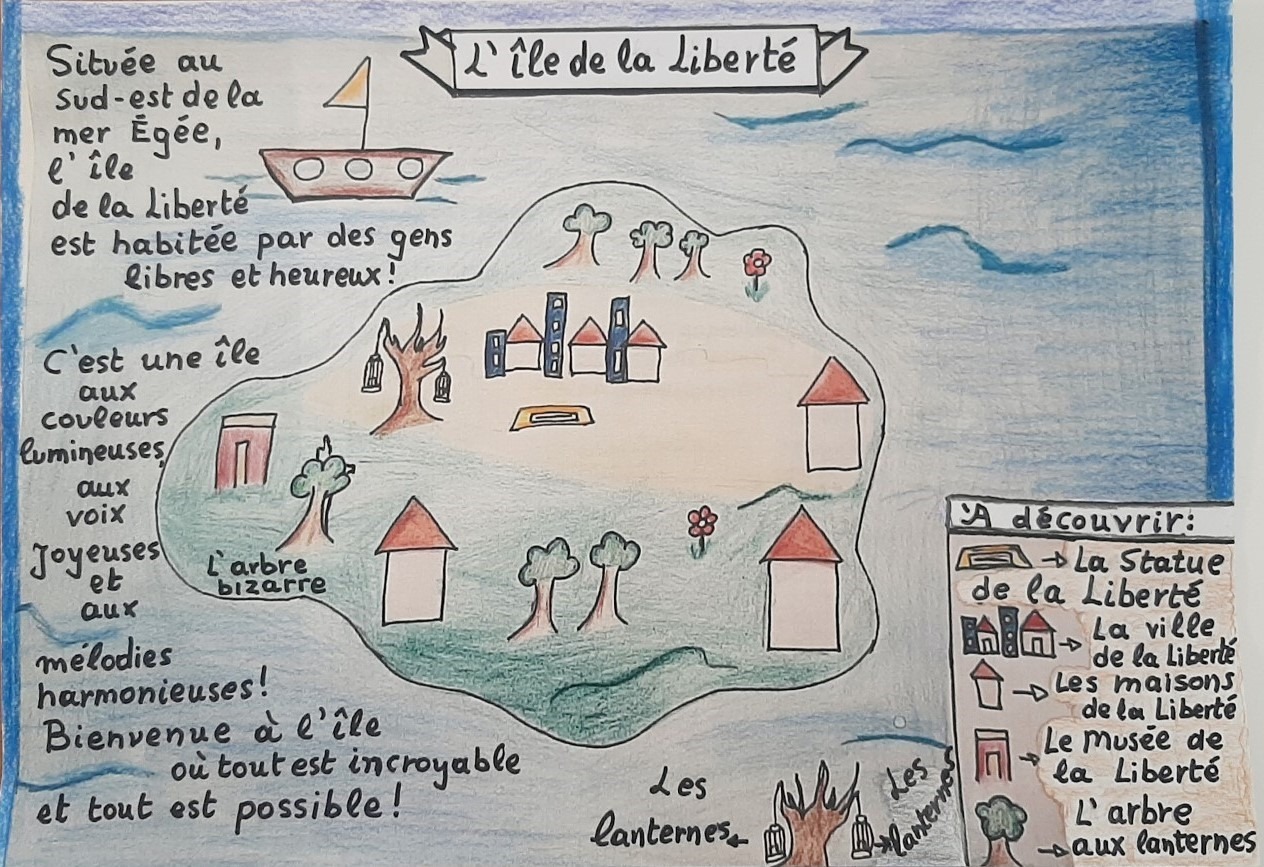 L'île de la Liberté
Située au
sud-est de la
mer Égée,
l'île
de la Liberté
est habitée par des gens
libres et heureux!
C'est une île
aux
couleurs
lumineuses,
aux
voix
Joyeuses
et
aux
mélodies
harmonieuses!
Bienvenue à l'île
où tout est incroyable
et tout est possible!
L'arbre
bizarre
Les
lanternes
Les
lanternes
'A découvrir:
La Statue
de la Liberté
La ville
de la Liberté
Les maisons
de la Liberté
Le musée de
la Liberté
L'arbre
aux lanternes